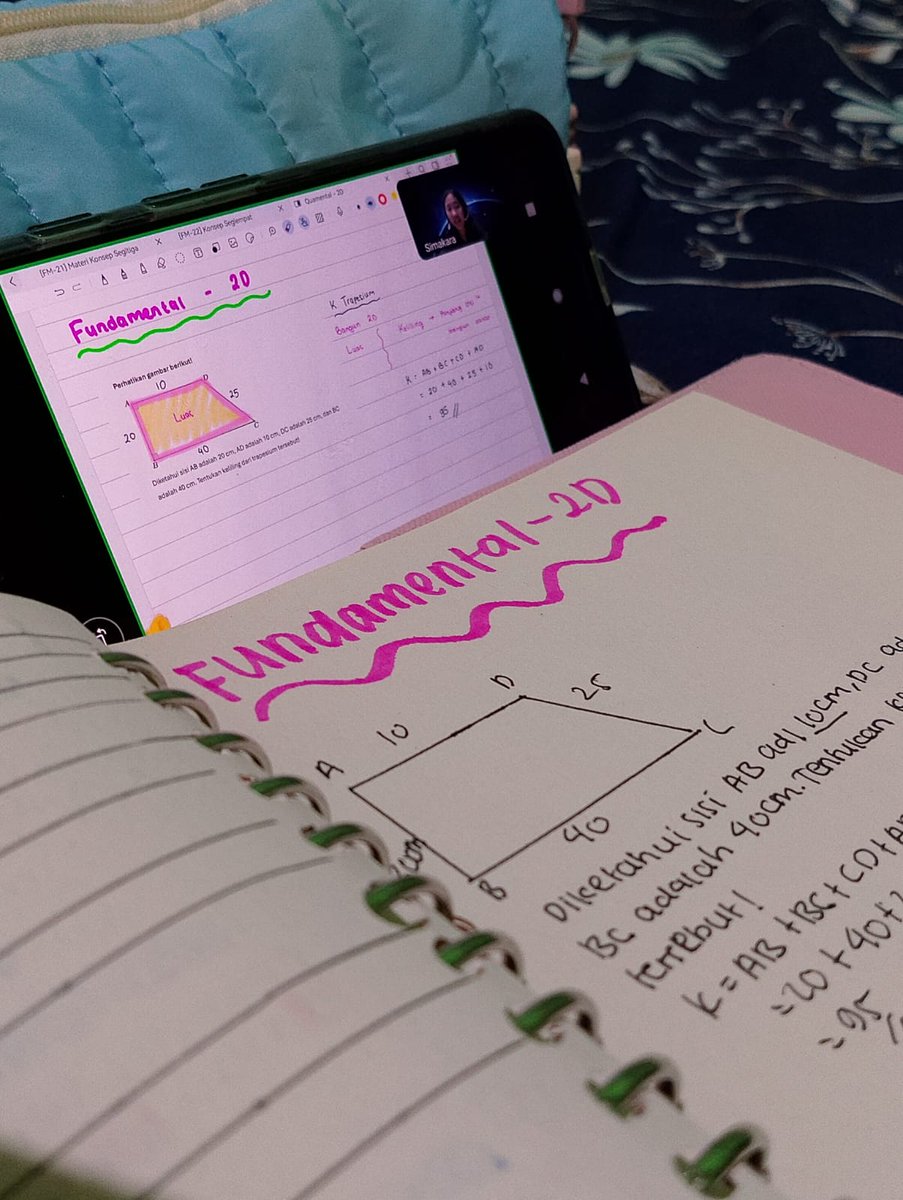 [FM-21] Materi Konsep Segitiga
[FM-22] Konsep Segiempat
Quamental - 2D
Simakara
Fundamental - 2D
Perhatikan gambar berikut!
10
A
D
25
Luas
20
B
40
C
Diketahui sisi AB adalah 20 cm, AD adalah 10 cm, DC adalah 25 cm, dan BC
adalah 40 cm. Tentukan keliling dari trapesium tersebut!
K Trapesium
Bangun 2D
Luas
Keliling →
K = AB + BC + CD + AD
= 20 + 40 + 25 + 10
= 95 //
Fundamental-2D
D
25
10
A
C
40
B
Diketahui sisi AB adl 10cm, DC ad
BC adalah 40cm. Tentukan
tersebut!
K = AB + BC + CD + A
= 20 + 40 +
= 95